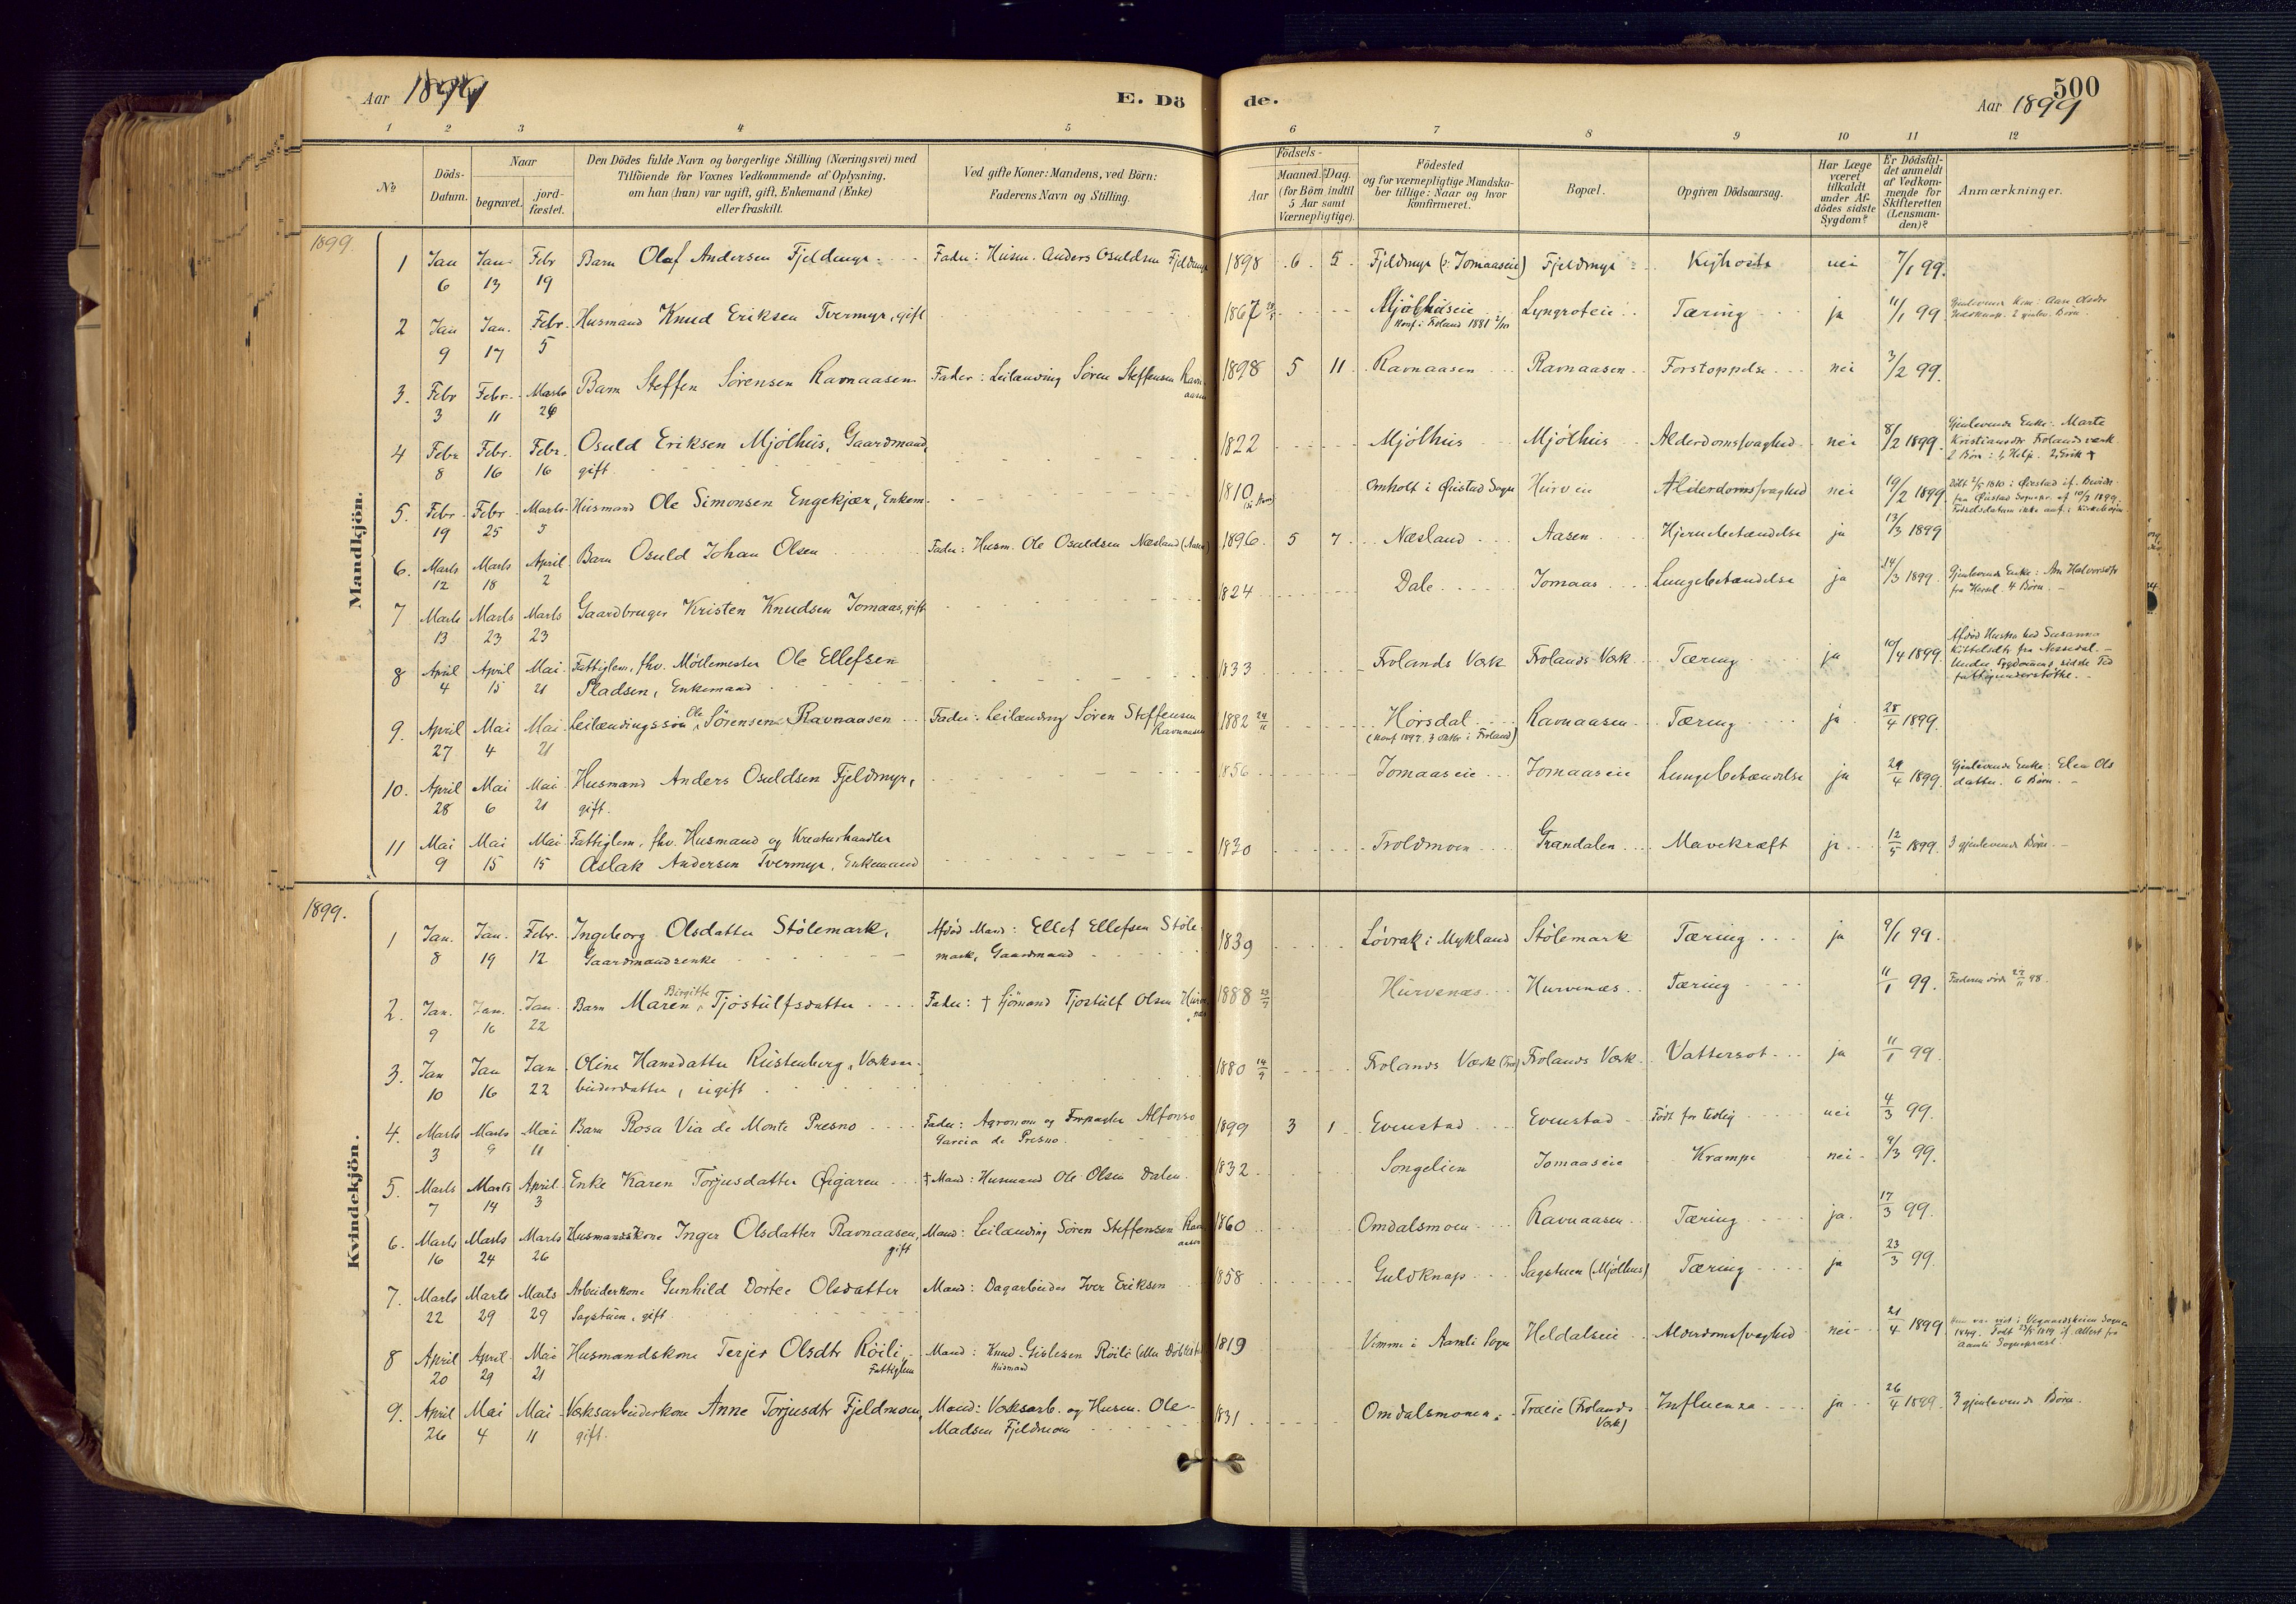 Aar 1899
E. Dö
de.
Aar 1899
500
1 2 3 4 5 6 7 8 9 10 11 12
No
Döds-Datum.
Naar
begravet.
jord-fæstet.
Den Dödes fulde Navn og borgerlige Stilling (Næringsvei) med
Tilföiende for Voxnes Vedkommende af Oplysning,
om han (hun) var ugift, gift, Enkemand (Enke)
eller fraskilt.
Ved gifte Koner: Mandens, ved Börn:
Faderens Navn og Stilling.
Födsels-
Aar
Maaned. Dag.
(for Börn indtil
5 Aar samt
Værnepligtige).
Födested
og for værnepligtige Mandska-
ber tillige: Naar og hvor
konfirmeret.
Bopæl.
Opgiven Dödsaarsag.
Har Læge
været
tilkaldt
under Af-
dödes sidste
Sygdom?
Er Dödsfal-
det anmeldt
af Vedkom-
mende for
Skifteretten
(Lensman-
den)?
Anmærkninger.
Mandkjön.
1899.
1 Jan 6 Jan 13 Febr 19 Barn Olaf Andersen Fjeldmyr Fader: Husm. Anders Osuldsen Fjeldmyr 1898 6 5 Fjeldmyr (Jomaaseie) Fjeldmyr Kighoste nei 7/1 99.
2 Jan 9 Jan. 17 Febr. 5 Husmand Knud Eriksen Tvermyr, gift 1867 Mjölhuseie Lyngroteie Tæring ja 11/1 99
Konf. i Froland 1881
3. Febr 3 Febr. 11 Marts 26 Barn Steffen Sörensen Ravnaasen Fader: Leilænding Sören Steffensen Ravnaasen 1898 5 11 Ravnaasen Ravnaasen Forstoppelse nei 3/2 99.
4 Febr 8 Febr. 16 Febr. 16 Osuld Eriksen Mjölhus, Gaardmand, gift 1822 Mjölhus Mjölhus Alderdomssvaghed nei 8/2 1899. Gjenlevende Enke: Marte
Kristiansdtr Frolands værk
2 Börn
5. Febr 19 Febr 25 Marts 5 Husmand Ole Simonsen Engekjær, Enkem. 1810 Omholt i Öiestad Sogn Hurveie Alderdomssvaghed nei 19/2 1899.
6. Marts 12 Marts 18 April 2 Barn Osuld Johan Olsen Fader: Husm. Ole Osuldsen Næsland (Aasen) 1896 5 7 Næsland Aasen Hjernebetændelse ja 13/3 1899
7 Marts 13 Marts 23 Marts 23 Gaardbruger Kristen Knudsen Jomaas, gift 1824 Dale Jomaas Lungebetændelse ja 14/3 1899. Gjenlevende Enke: Ane Halvorsdtr
4 Börn.
8 April 4 April 15 Mai 21 Fattiglem, fhv. Möllemester Ole Ellefsen
Pladsen, Enkemand 1833 Frolands Værk Frolands Værk Tæring ja 10/4 1899.
9. April 27 Mai 4 Mai 21 Leilændingssön Ole Sörensen Ravnaasen Fader: Leilænding Sören Steffensen Ravnaasen 1882 24/11 Hörsdal Ravnaasen Tæring ja 28/4 1899.
10. April 28 Mai 6 Mai 21 Husmand Anders Osuldsen Fjeldmyr, gift. 1856 Jomaaseie Jomaaseie Lungebetændelse ja 29/4 1899. Gjenlevende Enke: Elen Ols
datter. 6 Börn.
11 Mai 9 Mai 15 Mai 15 Fattiglem, fhv. Husmand og Kreaturhandler
Aslak Andersen Tvermyr, Enkemand 1830 Troldmoen Grandalen Mavekræft ja 12/5 1899. 3 gjenlevende Börn.
Kvindekjön.
1899.
1 Jan. 8 Jan. 19 Febr. 12 Ingeborg Olsdatter Stölemark, Gaardmandsenke Afdöd Mand: Ellef Ellefsen Stöle-
mark, Gaardmand 1839 Lövrak i Mykland Stölemark Tæring ja 9/1 99.
2. Jan. 9 Jan. 16 Jan. 22 Barn Maren Birgitte Tjöstulfsdatter Fader: † Sjömand Tjöstulf Olsen 1888 Hurvenæs Hurvenæs Tæring 11/1 99. Faderen döde 27/11 98.
3. Jan 10 Jan 16 Jan 22 Oline Hansdatter Rustenberg, Værksar-
beiderdatter, ugift 1880 14/9 Frolands Værk Frolands Værk Vattersot ja 11/1 99.
4. Marts 3 Marts 9 Mai 11 Barn Rosa Via de Monte Presno Fader: Agronom og Forpagter Alfonso
Garcia de Presno 1899 3 1 Evenstad Evenstad Födt for tidlig nei 4/3 99.
5. Marts 7 Marts 14 April 3 Enke Karen Torjusdatter Öigaren † Mand: Husmand Ole Olsen Dalen 1832 Songelien Jomaaseie Krampe nei 9/3 99.
6. Marts 16 Marts 24 Marts 26 Husmandskone Inger Olsdatter Ravnaasen, gift Mand: Leilænding Sören Steffensen Ravnaasen 1860 Omdalsmoen Ravnaasen Tæring ja. 17/3 99.
7. Marts 22 Marts 29 Marts 29 Arbeiderkone Gunhild Dortee Olsdatter
Sagstuen, gift Mand: Dagarbeider Iver Eriksen 1858 Guldknap Sagstuen (Mjölhus) Tæring ja 23/3 99.
8 April 20 April 29 Mai 21 Husmandskone Terjer Olsdtr Röili, Fattiglem Mand: Knud Gislesen Röili 1819 Vimme i Aamli Sogn Heldalseie Alderdomssvaghed nei 21/4 1899
9. April 26 Mai 4 Mai 11 Værksarbeiderkone Anne Torjusdtr Fjeldmoen, gift. Mand: Værksarb. og Husm. Ole
Madsen Fjeldmoen 1831 Omdalsmonen Træeie (Frolands Værk) Influenza ja 26/4 1899. 3 gjenlevende Börn.